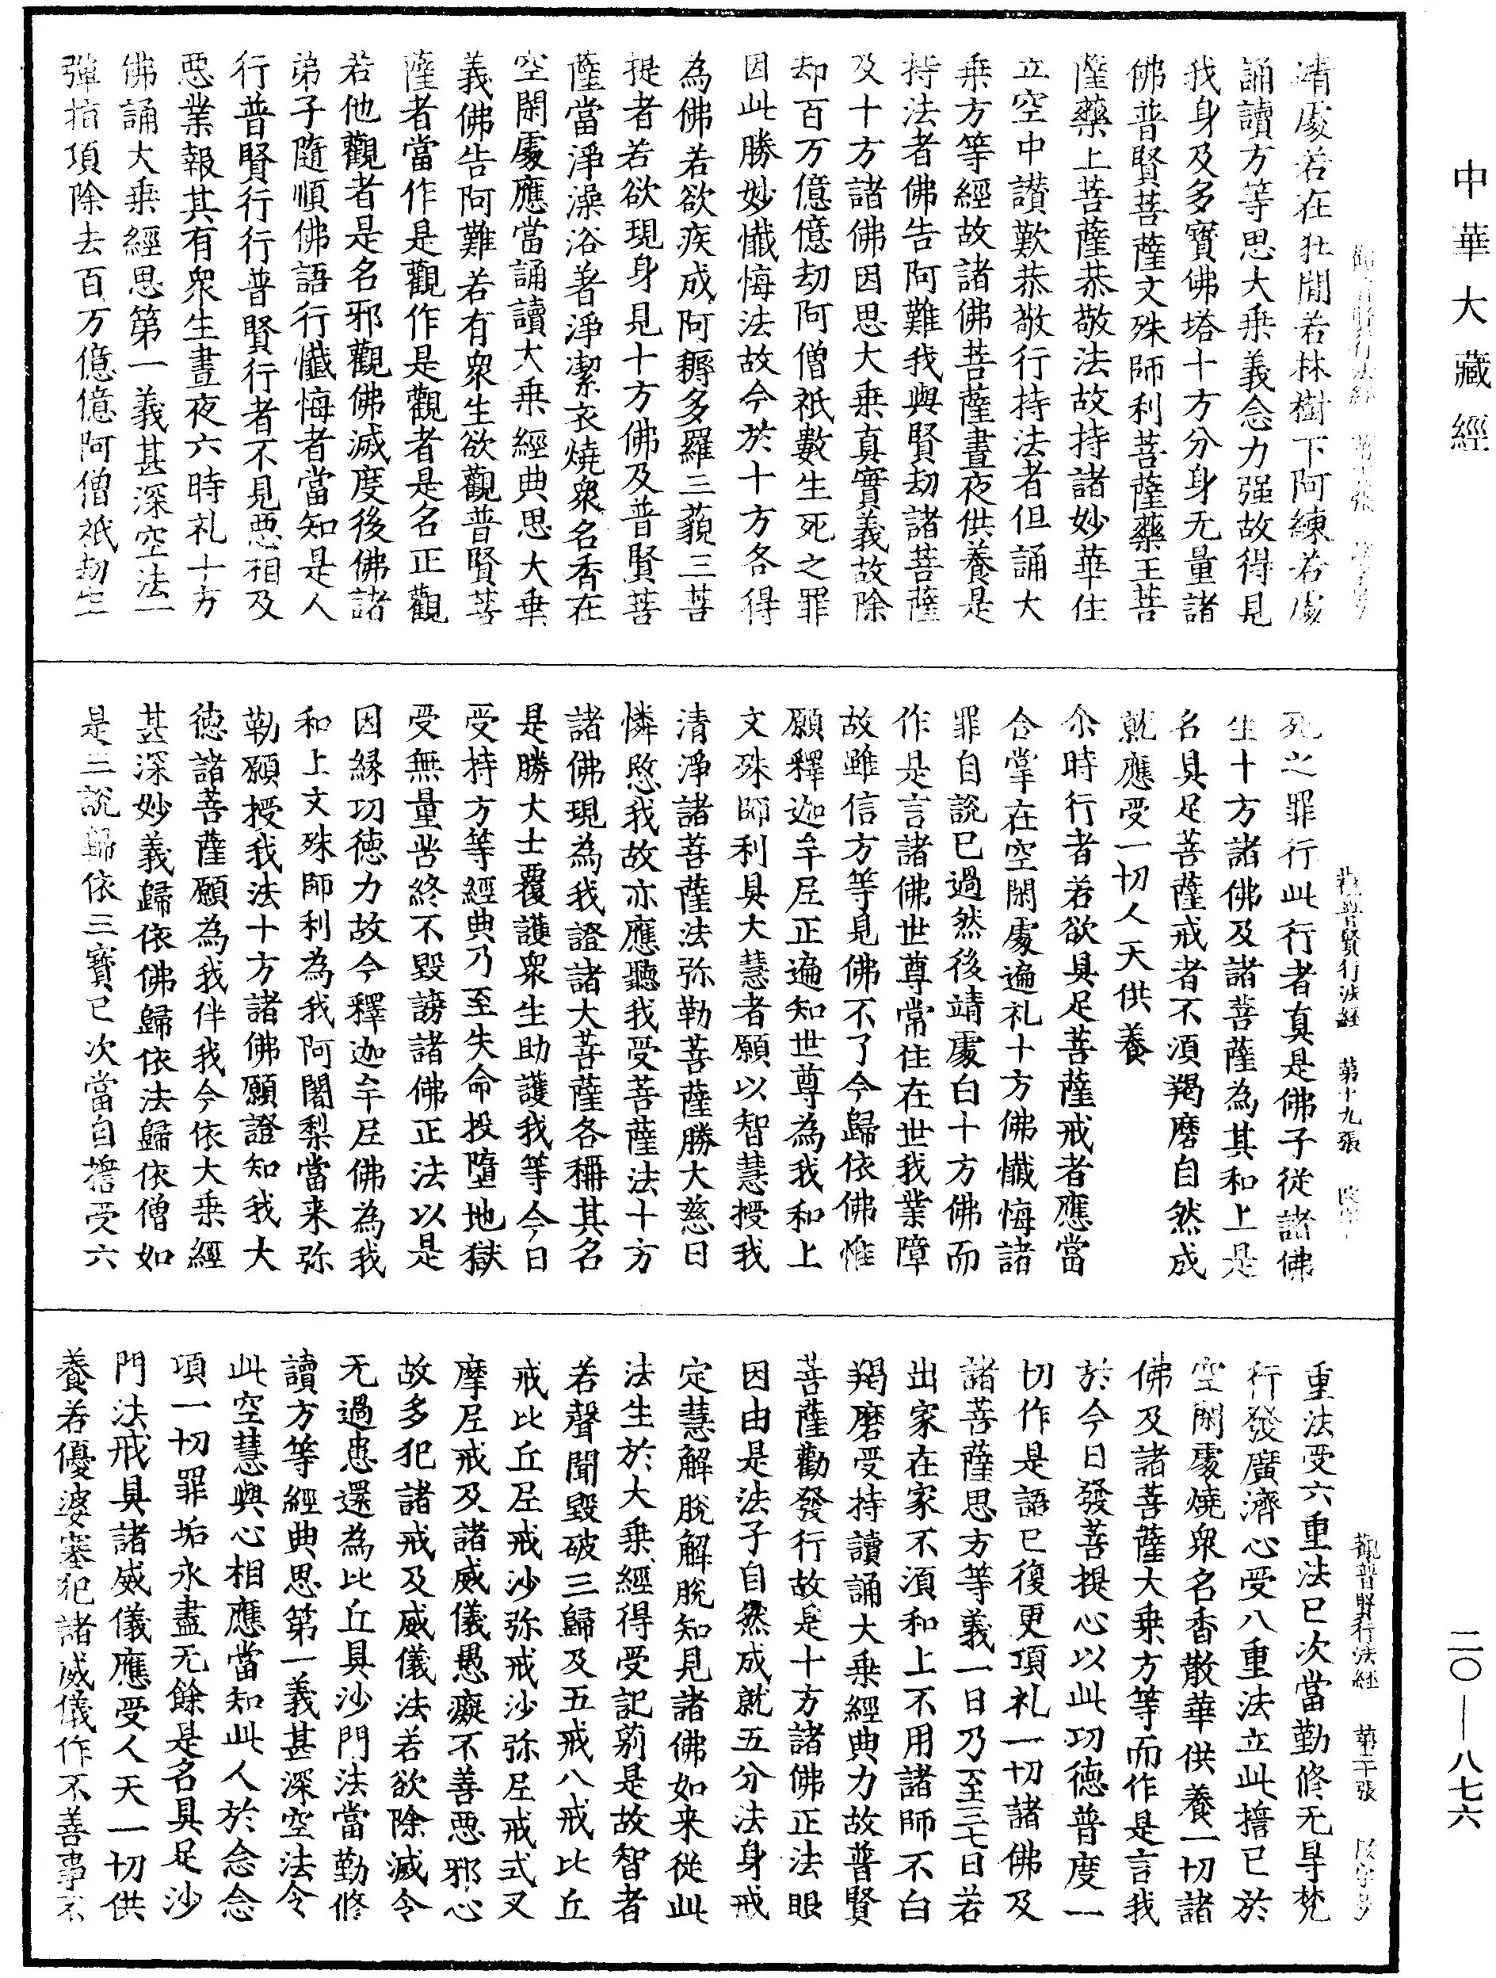 中華大藏經
靖處若在壮閒若林樹下阿練若處
誦讀方等思大乗義念力强故得見
我身及多寳佛塔十方分身无量諸
佛普賢菩薩文殊師利菩薩藥王菩
薩藥上菩薩恭敬法故持諸妙華住
立空中讃歎恭敬行持法者但誦大
乗方等經故諸佛菩薩晝夜供養是
持法者佛告阿難我與賢劫諸菩薩
及十方諸佛因思大乗真實義故除
却百万億億劫阿僧祇數生死之罪
因此勝妙懺悔法故今於十方各得
為佛若欲疾成阿耨多羅三藐三菩
提者若欲現身見十方佛及普賢菩
薩當淨澡浴著淨潔衣燒衆名香在
空閑處應當誦讀大乗經典思大乗
義佛告阿難若有衆生欲觀普賢菩
薩者當作是觀作是觀者是名正觀
若他觀者是名邪觀佛滅度後佛諸
弟子隨順佛語行懺悔者當知是人
行普賢行行普賢行者不見惡相及
惡業報其有衆生晝夜六時礼十方
佛誦大乗經思第一義甚深空法一
彈指頃除去百万億億阿僧祇劫生
觀普賢行法經 第十九張
死之罪行此行者真是佛子従諸佛
生十方諸佛及諸菩薩為其和上是
名具足菩薩戒者不湏羯磨自然成
就應受一切人天供養
尒時行者若欲具足菩薩戒者應當
合掌在空閑處遍礼十方佛懺悔諸
罪自說已過然後靖處白十方佛而
作是言諸佛世尊常住在世我業障
故雖信方等見佛不了今歸依佛惟
願釋迦牟尼正遍知世尊為我和上
文殊師利具大慧者願以智慧授我
清淨諸菩薩法弥勒菩薩勝大慈日
憐愍我故亦應聽我受菩薩法十方
諸佛現為我證諸大菩薩各稱其名
是勝大士覆護衆生助護我等今日
受持方等經典乃至失命投墮地獄
受無量苦終不毀謗諸佛正法以是
因縁功徳力故今釋迦牟尼佛為我
和上文殊師利為我阿闍梨當来弥
勒願授我法十方諸佛願證知我大
徳諸菩薩願為我伴我今依大乗經
甚深妙義歸依佛歸依法歸依僧如
是三說歸依三寳已次當自擔受六
觀普賢行法經 第二十張
重法受六重法已次當勤修无㝵梵
行發廣濟心受八重法立此擔已於
空閑處燒衆名香散華供養一切諸
佛及諸菩薩大乗方等而作是言我
於今日發菩提心以此功徳普度一
切作是語已復更項礼一切諸佛及
諸菩薩思方等義一日乃至三七日若
出家在家不湏和上不用諸師不白
羯磨受持讀誦大乗經典力故普賢
菩薩勸發行故是十方諸佛正法眼
因由是法子自然成就五分法身戒
定慧解脫解脫知見諸佛如来従此
法生於大乗經得受記莂是故智者
若聲聞毀破三歸及五戒八戒比丘
戒比丘尼戒沙弥戒沙弥尼戒式叉
摩尼戒及諸威儀愚癡不善惡邪心
故多犯諸戒及威儀法若欲除滅令
无過患還為比丘具沙門法當勤修
讀方等經典思第一義甚深空法令
此空慧與心相應當知此人於念念
項一切罪垢永盡无餘是名具足沙
門法戒具諸威儀應受人天一切供
養若優婆塞犯諸威儀作不善事不
二〇—八七六